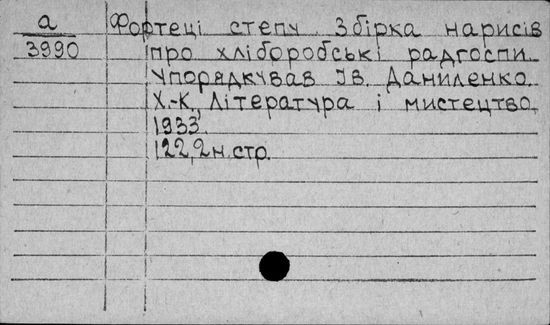 а
3990
Фортеці степу. Збірка нарисів
про хліборобські радгоспи.
Упорядкував Ів. Даниленко.
Х.-К., Література і мистецтво,
1933.
122,2н.стр.